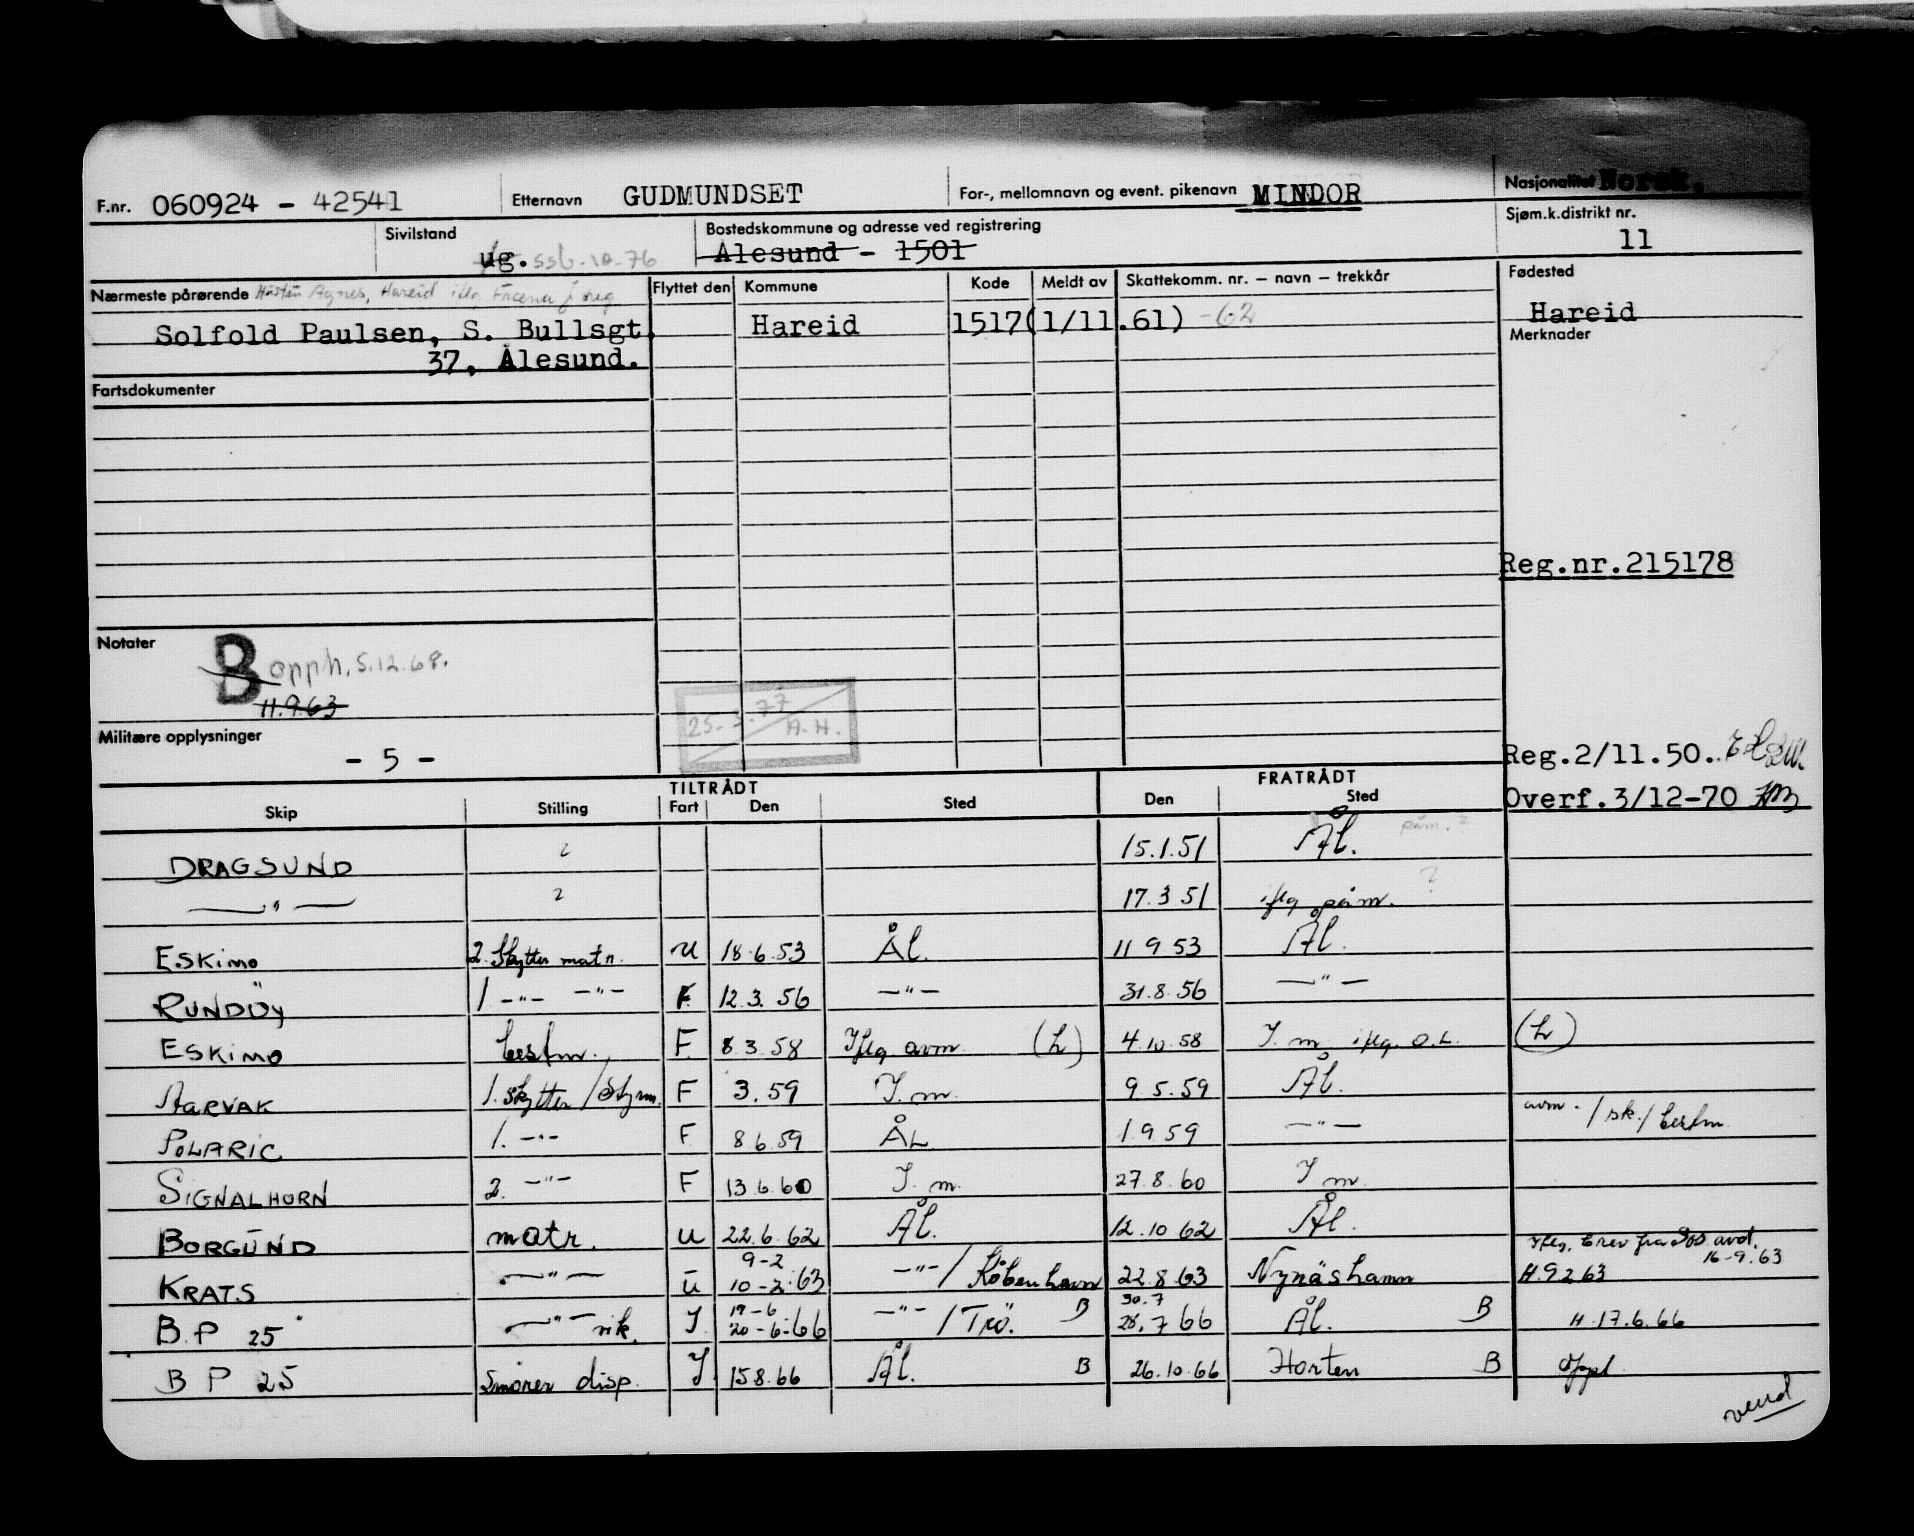 F.nr. 060924 - 42541 Etternavn GUDMUNDSET For-, mellomnavn og event. pikenavn MINDOR Nasjonalitet Norsk.
Sivilstand ug. ssb. 10-76 Bostedskommune og adresse ved registrering Ålesund - 1501 Sjøm.k.distrikt nr. 11
Nærmeste pårørende Agnes, Hareid Flyttet den Kommune Kode Meldt av Skattekomm. nr. – navn – trekkår Fødested
Solfold Paulsen, S. Bullsgt. Hareid 1517 (1/11.61) -62 Hareid
37, Ålesund. Merknader
Fartsdokumenter
Reg.nr.215178
Notater
B opph. 5.12.68.
11.9.63
25-3.77
A.H.
Militære opplysninger
- 5 -
Reg.2/11.50.
Overf.3/12-70
TILTRÅDT FRATRÅDT
Skip Stilling Fart Den Sted Den Sted
DRAGSUND 2 15.1.51 Ål. påm. ?
—"— 2 17.3 51 iflg påm. ?
ESKIMO 2. Skytter matr. U 18.6.53 Ål. 11 9 53 Ål.
RUNDÖY 1. -"- -"- F. 12.3.56 —"— 31.8.56 —"—
ESKIMO bestm. F. 8 3.58 Iflg avm. (L) 4.10.58 I. m. iflg. O.L. (L)
AARVAK 1. skytter / Styrm. F 3.59 I. m. 9 5.59 Ål.
POLARIC 1. -"- F. 8 6.59 ÅL 1.9 59 —"— avm. / sk./ bestm
SIGNALHORN 2. -"- F 13.6.60 I. m. 27.8.60 I m.
BORGUND matr. U 22.6.62 Ål. 12.10 62 Ål.
Iflg. brev fra avd. 16-9.63
KRATS —"— U 9-2 10-2.63 -"- / Köbenhavn 22.8 63 Nynäshamn H.9 2 63
B.P 25 —"— vik. I 19-6 20-6.66 -"- / Trö. B 30.7 28.7 66 Ål. B H.17.6.66
B P 25 Smører disp. I 15 8.66 Ål. B 26.10.66 Horten B Oppl
vend